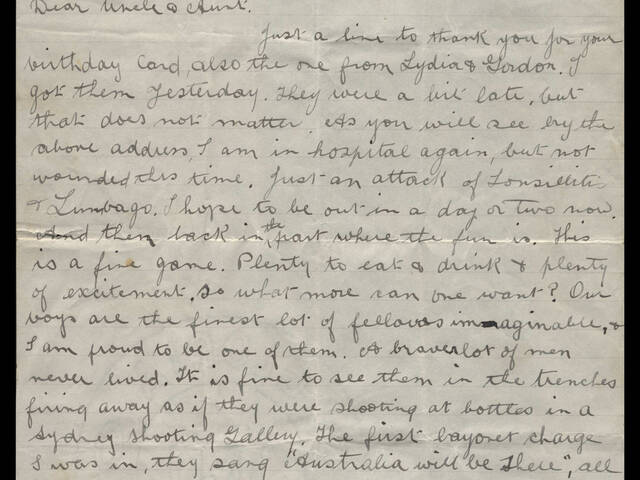 Dear Uncle & Aunt.
Just a line to thank you for your
birthday Card, also the one from Lydia & Gordon. I
got them Yesterday. They were a bit late, but
that does not matter. As you will see by the
above address, I am in hospital again, but not
wounded this time. Just an attack of Tonsillitis
& Lumbago. I hope to be out in a day or two now.
And then back in the part where the fun is. This
is a fine game. Plenty to eat & drink & plenty
of excitement, so what more can one want? Our
boys are the finest lot of fellows immaginable, &
I am proud to be one of them. A braver lot of men
never lived. It is fine to see them in the trenches
firing away as if they were shooting at bottles in a
Sydney Shooting Gallery. The first bayonet charge
I was in, they sang "Australia will be There", all